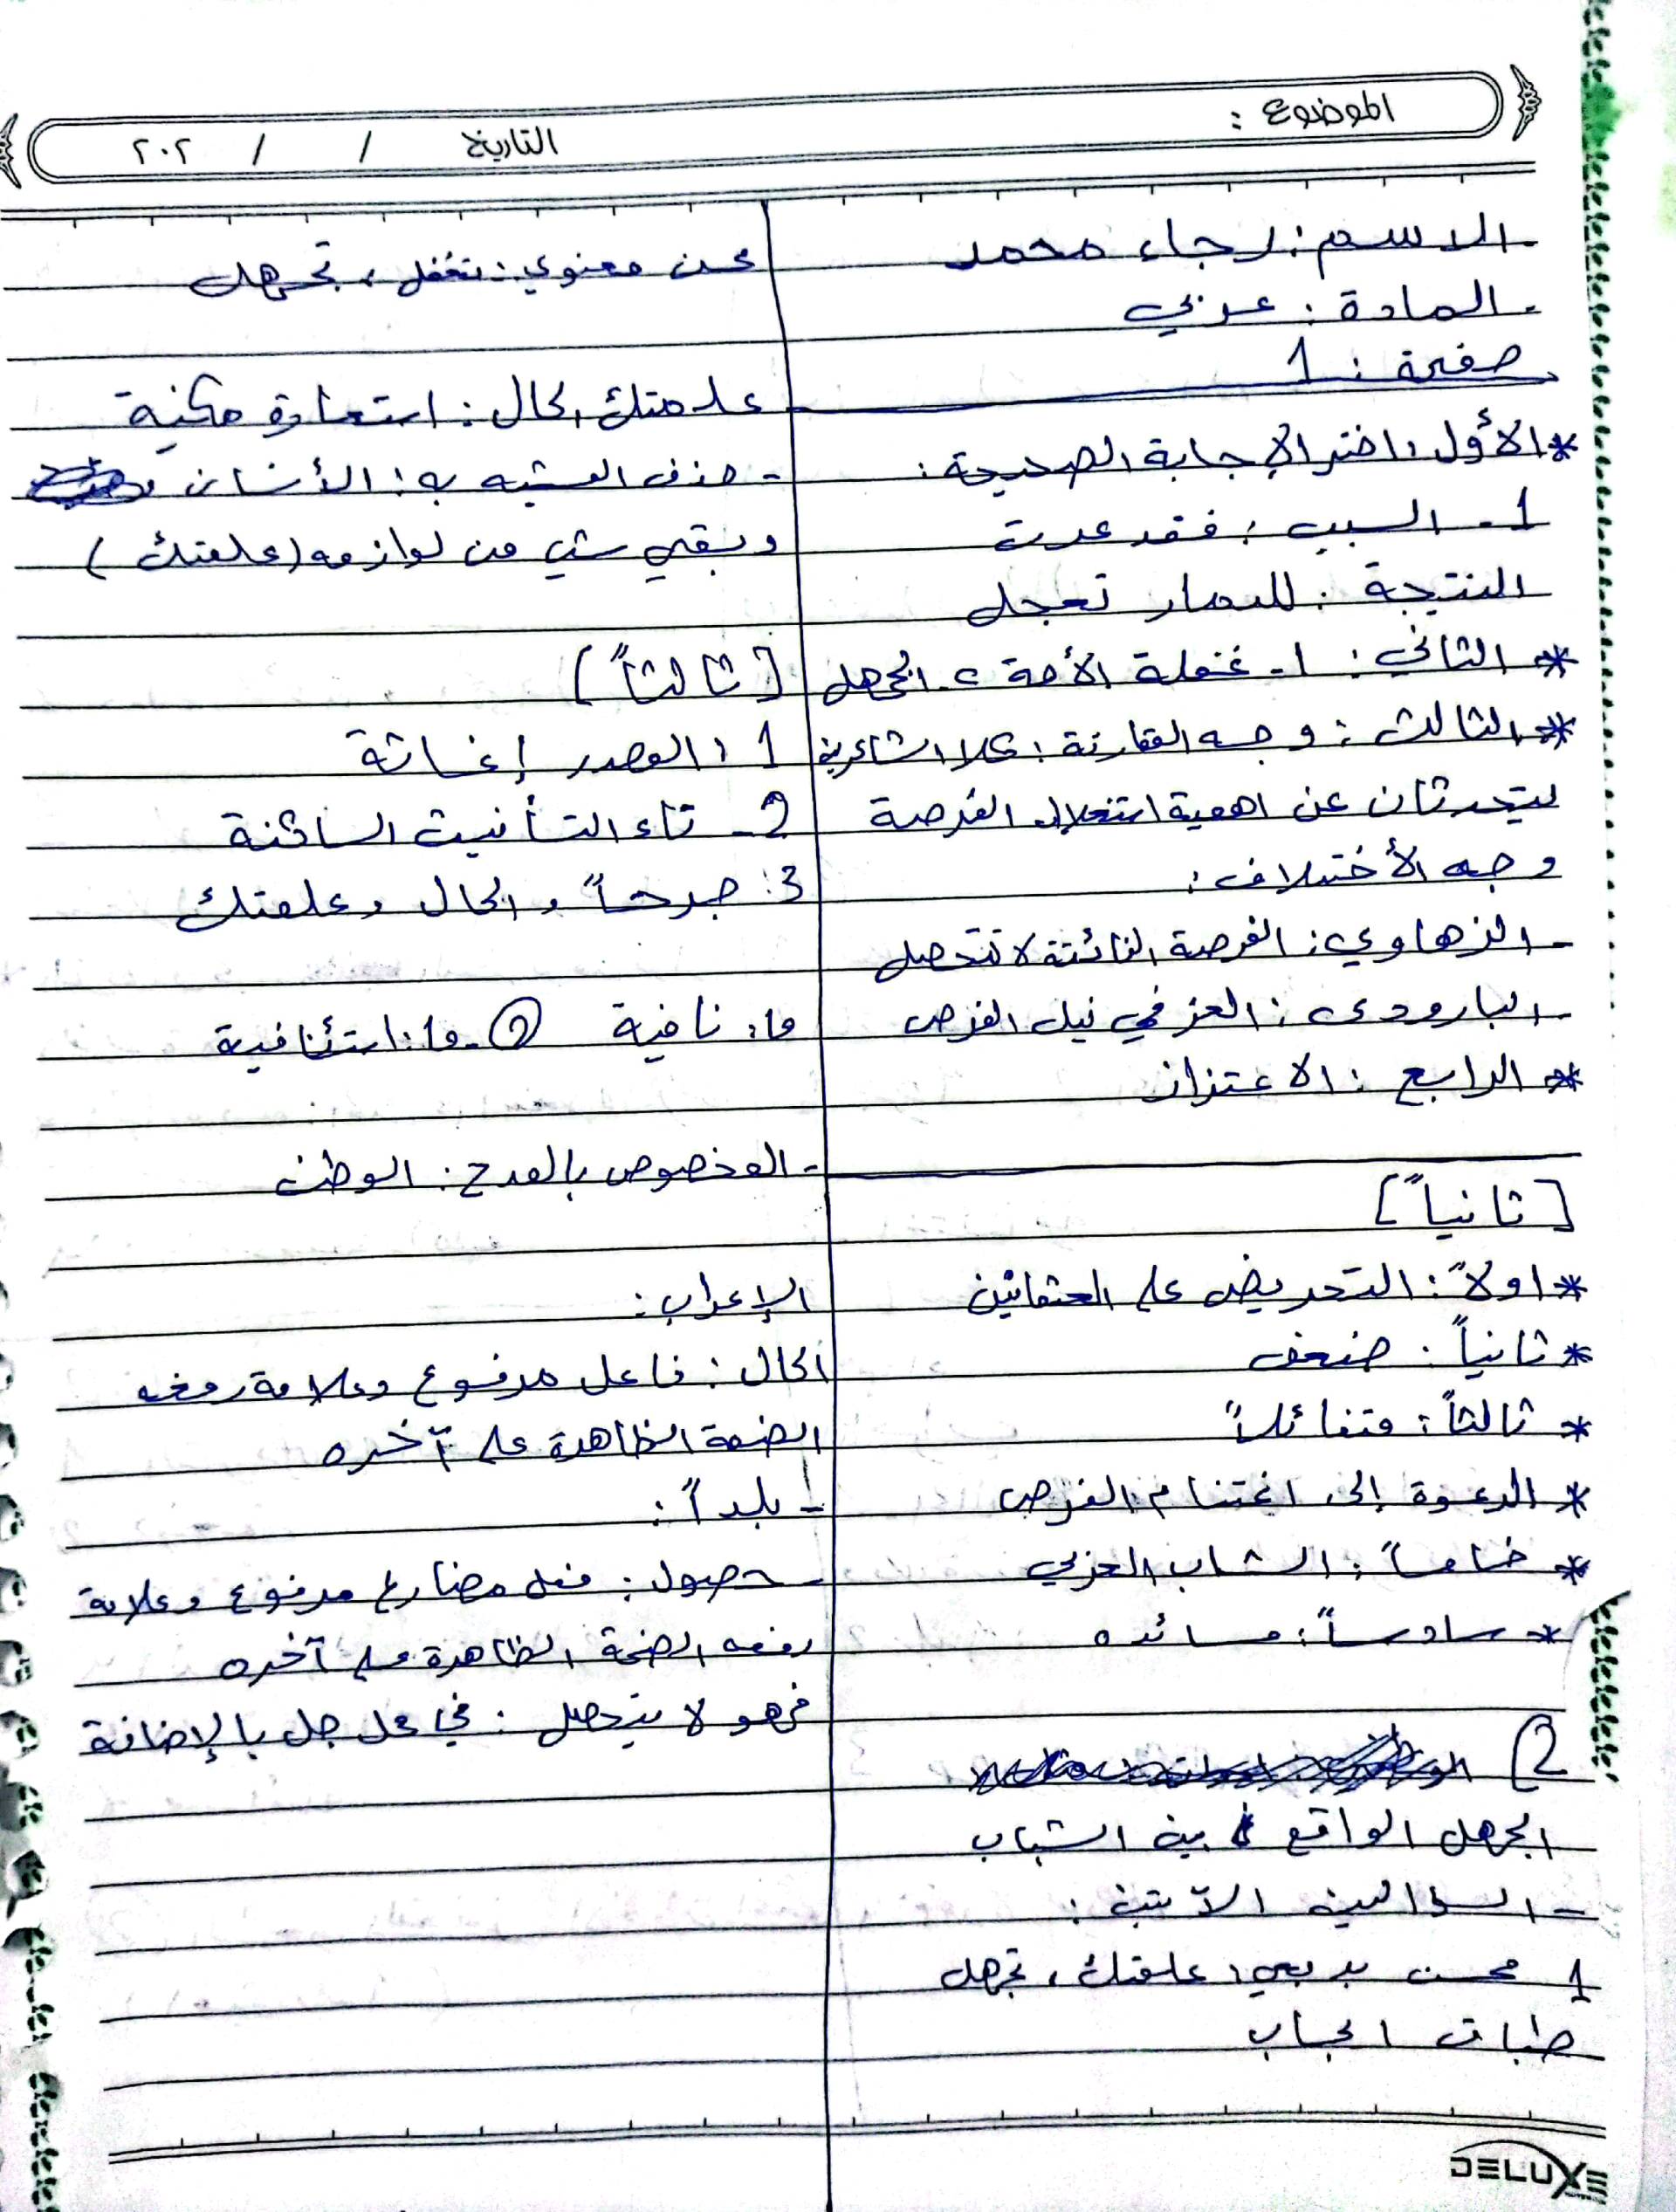 الموضوع :
التاريخ / / ٢٠٢
- الاسم : رجاء محمد
- المادة : عربي
صفحة : 1
* الأول : اختر الإجابة الصحيحة :
1 - السبب : فقد عدت
النتيجة : للدمار تعجل
* الثاني : 1 - غفلة الأمة 2 - الجهل
* الثالث : وجه المقارنة : كلا الشاعرين
يتحدثان عن اهمية استغلال الفرصة
وجه الأختلاف :
- الزهاوي : الفرصة الفائتة لا تتحصل
- البارودي : العز في نيل الفرص
* الرابع : الاعتزاز
[ ثانياً ]
* اولاً : التحريض على العثمانين
* ثانياً : ضعف
* ثالثاً : متفائلاً
* الدعوة إلى اغتنام الفرص
* خامساً : الشاب العربي
* سادساً : سائده
2]
الجهل الواقع بين الشباب
- السؤالين الآتين :
1 محسن بديعي : علمتك ، تجهل
طباق ايجاب
محسن معنوي : تغفل ، تجهل
علمتك الحال : استعارة مكنية
- حذف المشبه به : الأنسان
وبقي شي من لوازمه ( علمتك )
[ ثالثاً ]
1 : المصدر إغاثة
2 - تاء التأنيث الساكنة
3 : جرحاً و الحال و علمتك
ما : نافية 2 - ما : استئنافية
- المخصوص بالمدح : الوطن
الإعراب :
الحال : فاعل مرفوع وعلامة رفعه
الضمة الظاهرة على آخره
- بلداً :
- حصول : فعل مضارع مرفوع وعلامة
رفعه الضمة الظاهرة على آخره
فهو لا يتحصل : في محل جل بالإضافة
DELUXE